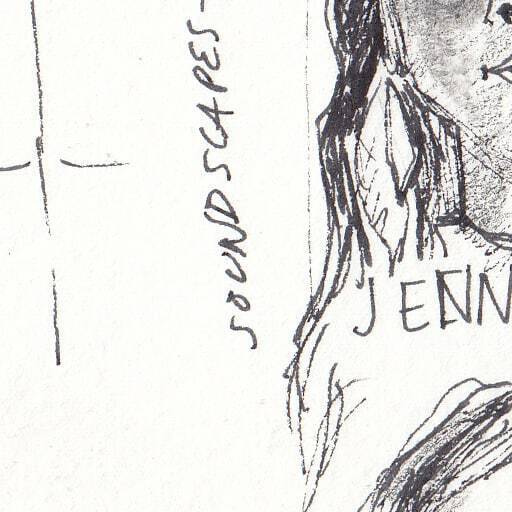 SOUNDSCAPES-
JENN